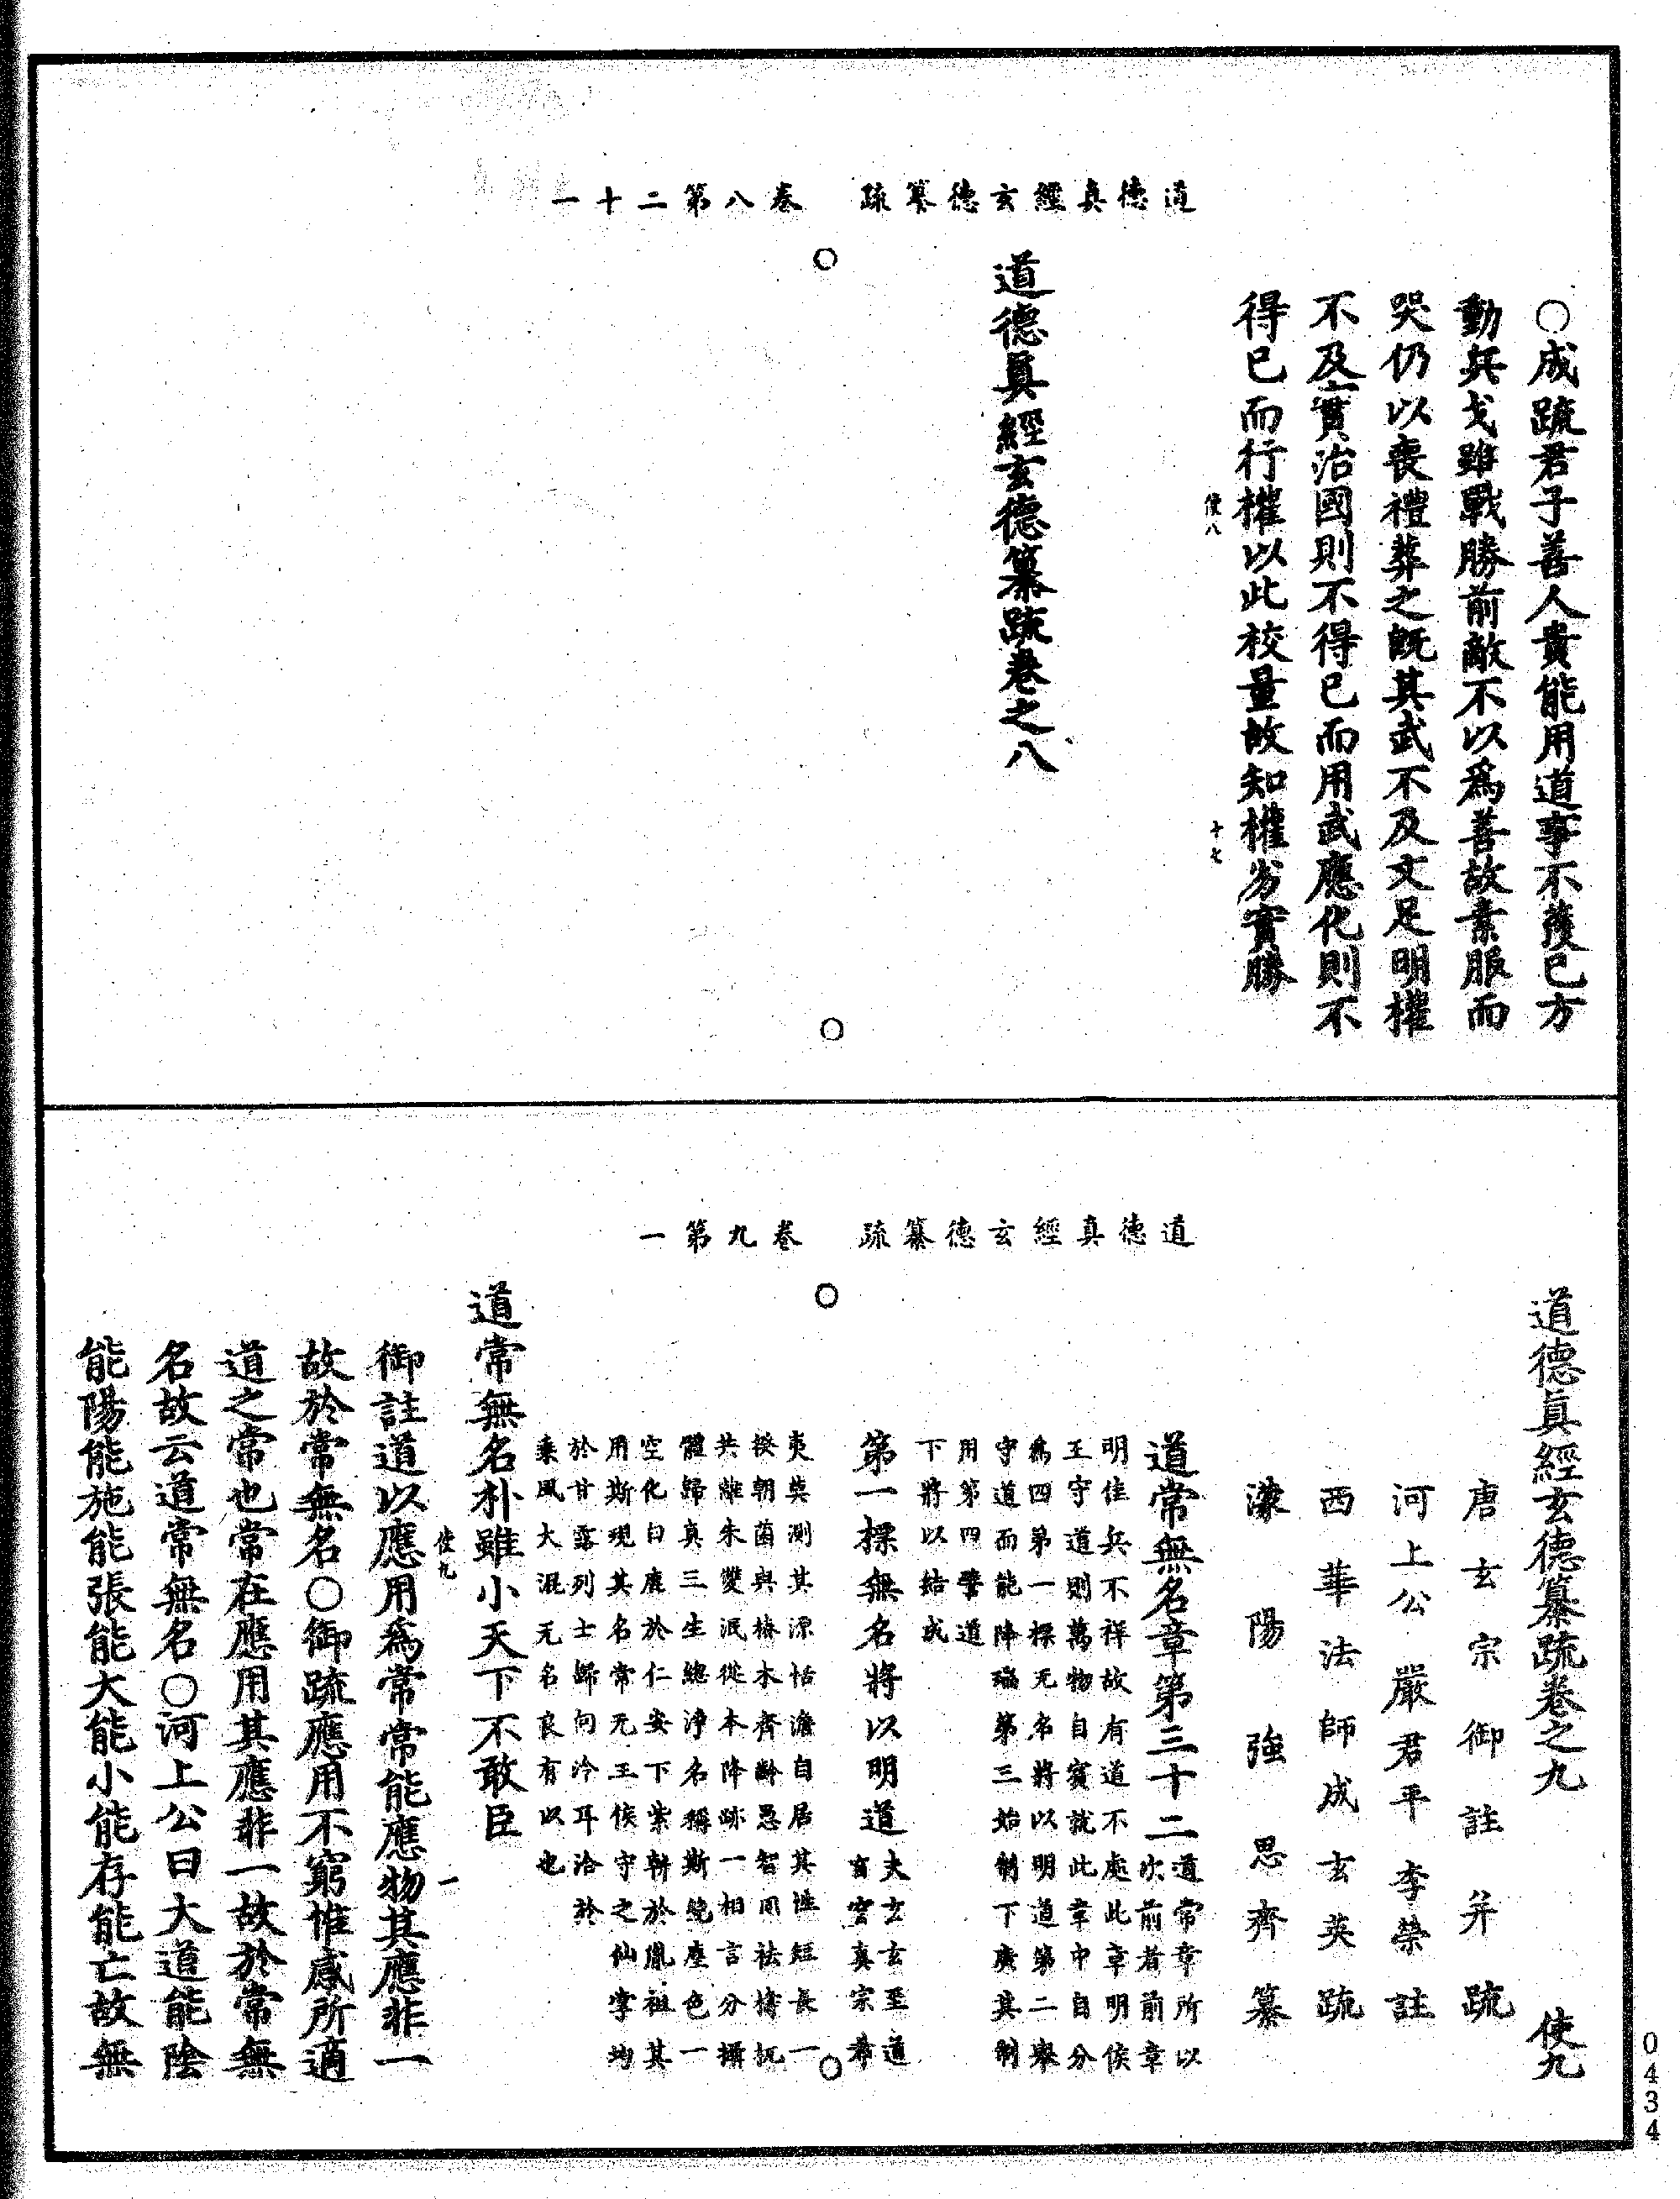 道德真經玄德纂疏　卷八第二十一
○成疏君子善人貴能用道事不獲已方
動兵戈雖戰勝前敵不以爲善故素服而
哭仍以喪禮葬之既其武不及文足明權
不及實治國則不得已而用武應化則不
得已而行權以此校量故知權劣實勝
使八　十七
道德眞經玄德纂疏卷之八
道德真經玄德纂疏　卷九第一
道德眞經玄德纂疏卷之九　使九
唐玄宗御註并疏
河上公嚴君平李榮註
西華法師成玄英疏
濛陽強思齊纂
道常無名章第三十二道常章所以
次前者前章
明佳兵不祥故有道不處此章明侯
王守道則萬物自賓就此章中自分
爲四第一標无名將以明道第二舉
守道而能降瑞第三始制下廣其制
用第四譬道
下將以結成
第一標無名將以明道夫玄玄至道
真宗希
夷莫測其源恬澹自居其性短長一
揆朝菌與椿木齊齡愚智同袪檮杌
共離朱雙泯從本降跡一相言分攝
體歸真三生總淨名稱斯絕塵色一
空化白鹿於仁安下紫軿於胤祖其
用斯現其名常无王侯守之仙掌均
於甘露列士歸向泠耳洽於
乘風大混无名良有以也
道常無名朴雖小天下不敢臣
使九　一
御註道以應用爲常常能應物其應非一
故於常無名○御疏應用不窮惟感所適
道之常也常在應用其應非一故於常無
名故云道常無名○河上公曰大道能陰
能陽能施能張能大能小能存能亡故無
0434